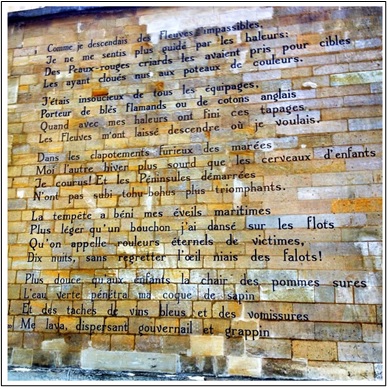 Comme je descendais des Fleuves impassibles,
Je ne me sentis plus guidé par les haleurs:
Des Peaux-rouges criards les avaient pris pour cibles
Les ayant cloués nus aux poteaux de couleurs.
J'étais insoucieux de tous les équipages,
Porteur de blés flamands ou de cotons anglais
Quand avec mes haleurs ont fini ces tapages
Les Fleuves m'ont laissé descendre où je voulais.
Dans les clapotements furieux des marées
Moi l'autre hiver plus sourd que les cerveaux d'enfants
Je courus! Et les Péninsules démarrées
N'ont pas subi tohu-bohus plus triomphants.
La tempête a béni mes éveils maritimes
Plus léger qu'un bouchon j'ai dansé sur les flots
Qu'on appelle rouleurs éternels de victimes,
Dix nuits, sans regretter l'œil niais des falots!
Plus douce qu'aux enfants la chair des pommes sures
L'eau verte pénétra ma coque de sapin
Et des taches de vins bleus et des vomissures
Me lava, dispersant gouvernail et grappin